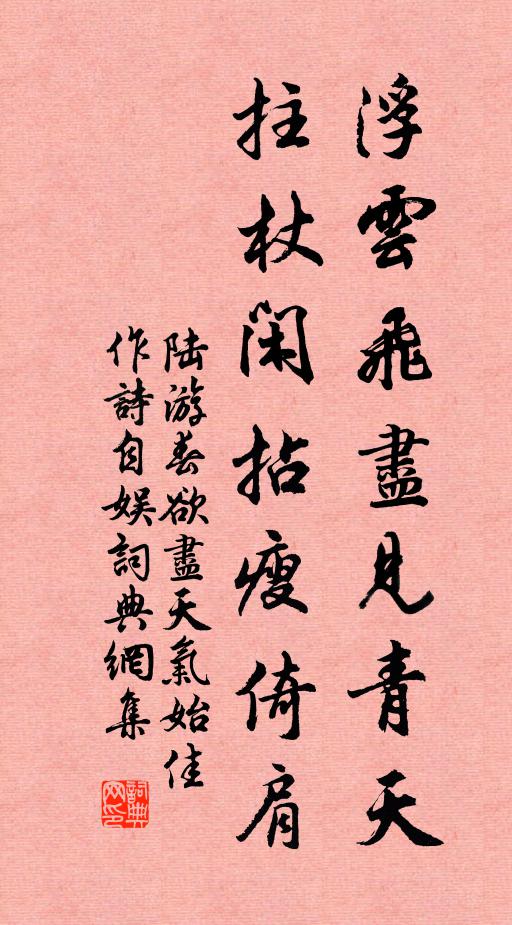 浮雲飛盡見青天
拄杖閑拈瘦倚肩
陆游春欲盡天氣始佳
作詩自娱詞典網集
詞典
网印